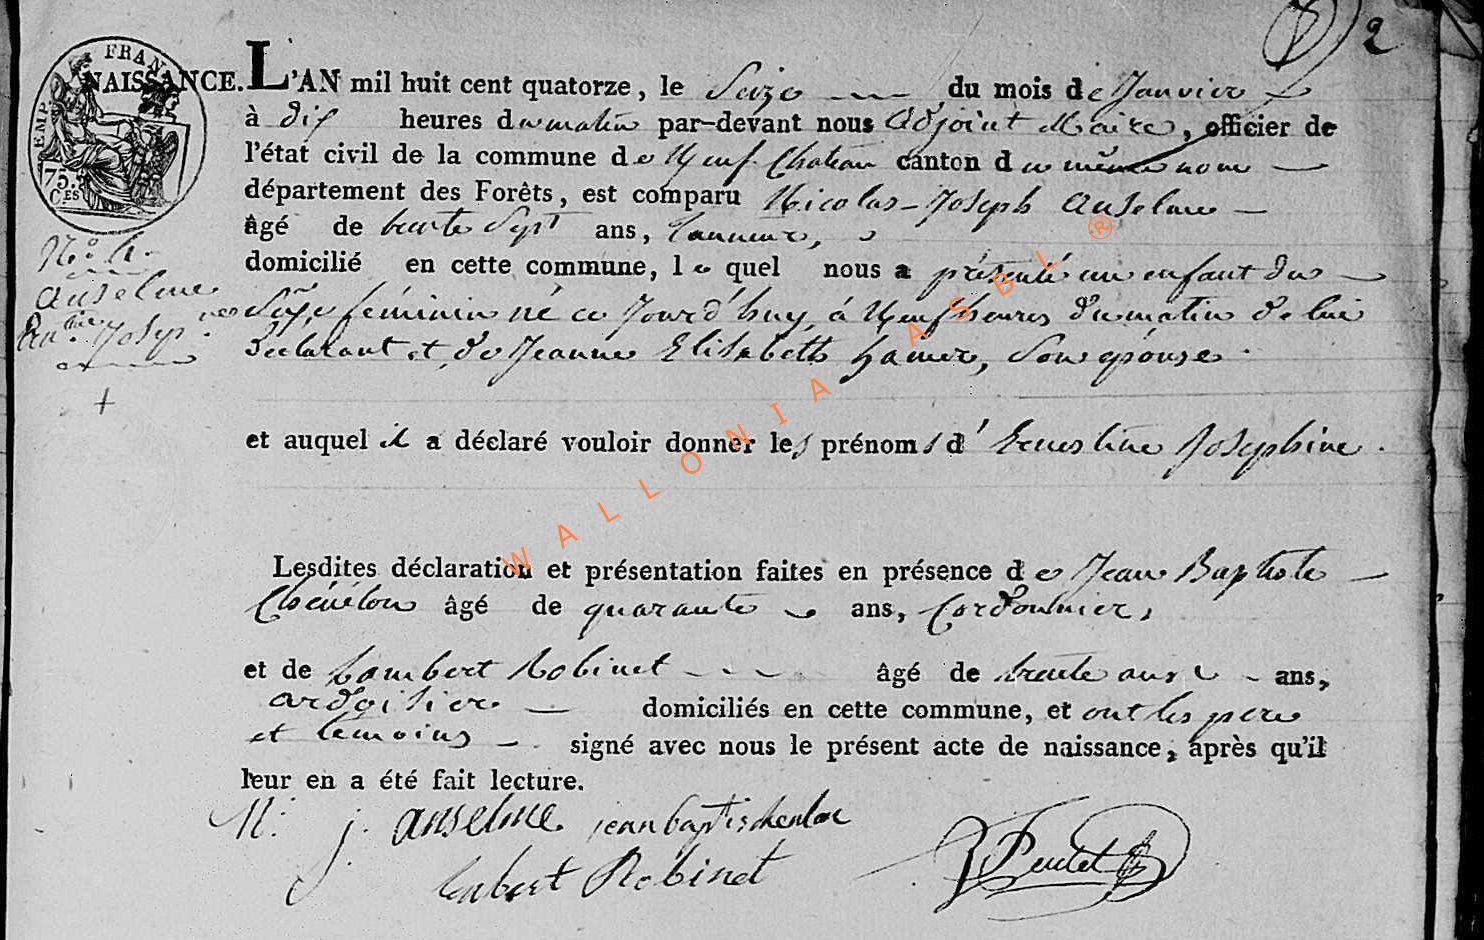 2
FRAN
EMP
75.
CES
NAISSANCE. L'AN mil huit cent quatorze, le Seize du mois de Janvier
à dix heures du matin par-devant nous adjoint Maire, officier de
l'état civil de la commune de Neuf Chateau canton du même nom
département des Forêts, est comparu Nicolas-Joseph Anselme
âgé de trente Sept ans, tanneur,
domicilié en cette commune, le quel nous a présenté un enfant du
Sexe féminin né ce Jourd'huy, à Neuf heures du matin de lui
Declarant et de Jeanne Elisabeth hamer, Son épouse.
N.o 4.
anselme
Ern.ine Joseph.ne
+
et auquel il a déclaré vouloir donner les prénoms d'Ernestine Josephine.
Lesdites déclaration et présentation faites en présence de Jean Baptiste
Chénélon âgé de quarante ans, Cordonnier,
et de Lambert Robinet âgé de trente ans,
ardoisier domiciliés en cette commune, et ont les pere
et témoins signé avec nous le présent acte de naissance, après qu'il
leur en a été fait lecture.
N: j. anselme jean baptis
Lenbert Robinet
WALLONIA ASBL ®